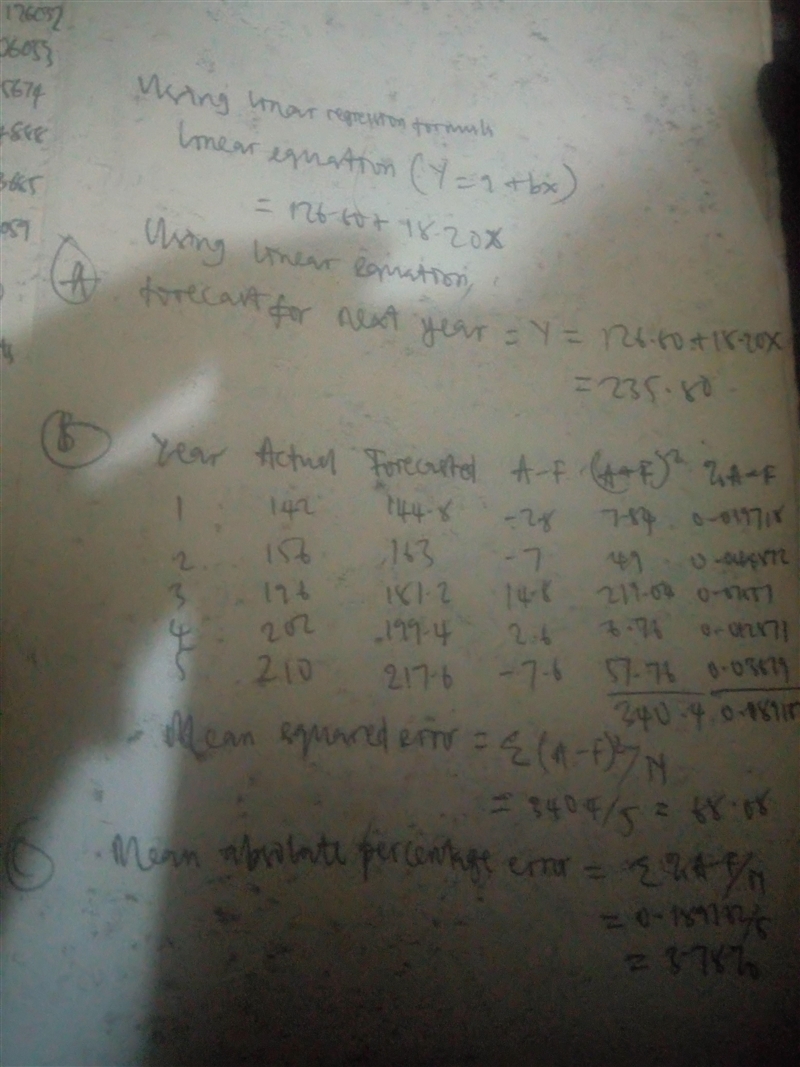 126032
06053
5674
Using linear regression formula
linear equation (Y = a + bx)
= 126.60 + 18.20x
Using linear equation,
(A)
forecast for next year = Y = 126.60 + 18.20x
= 235.80
(B)
Year Actual Forecasted A-F (A-F)² % A-F
1 142 144.8 -2.8 7.84 0.019718
2 156 163 -7 49 0.044872
3 196 181.2 14.8 219.04
4 202 199.4 2.6 6.76 0.012871
5 210 217.6 -7.6 57.76 0.03619
340.4
Mean squared error = Σ(A-F)²/N
= 340.4/5 = 68.08
Mean absolute percentage error = Σ % A-F/N
= 3.78%